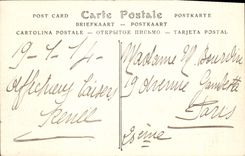 POST CARD Carte Postale POSTKARTE
BRIEFKAART — POSTKAART
CARTOLINA POSTALE — ОТКРЫТОЕ ПИСЬМО — TARJETA POSTAL
19-1-14
Affectueux baisers
Renée
Madame M. Bourdin
19 Avenue Gambetta
Paris